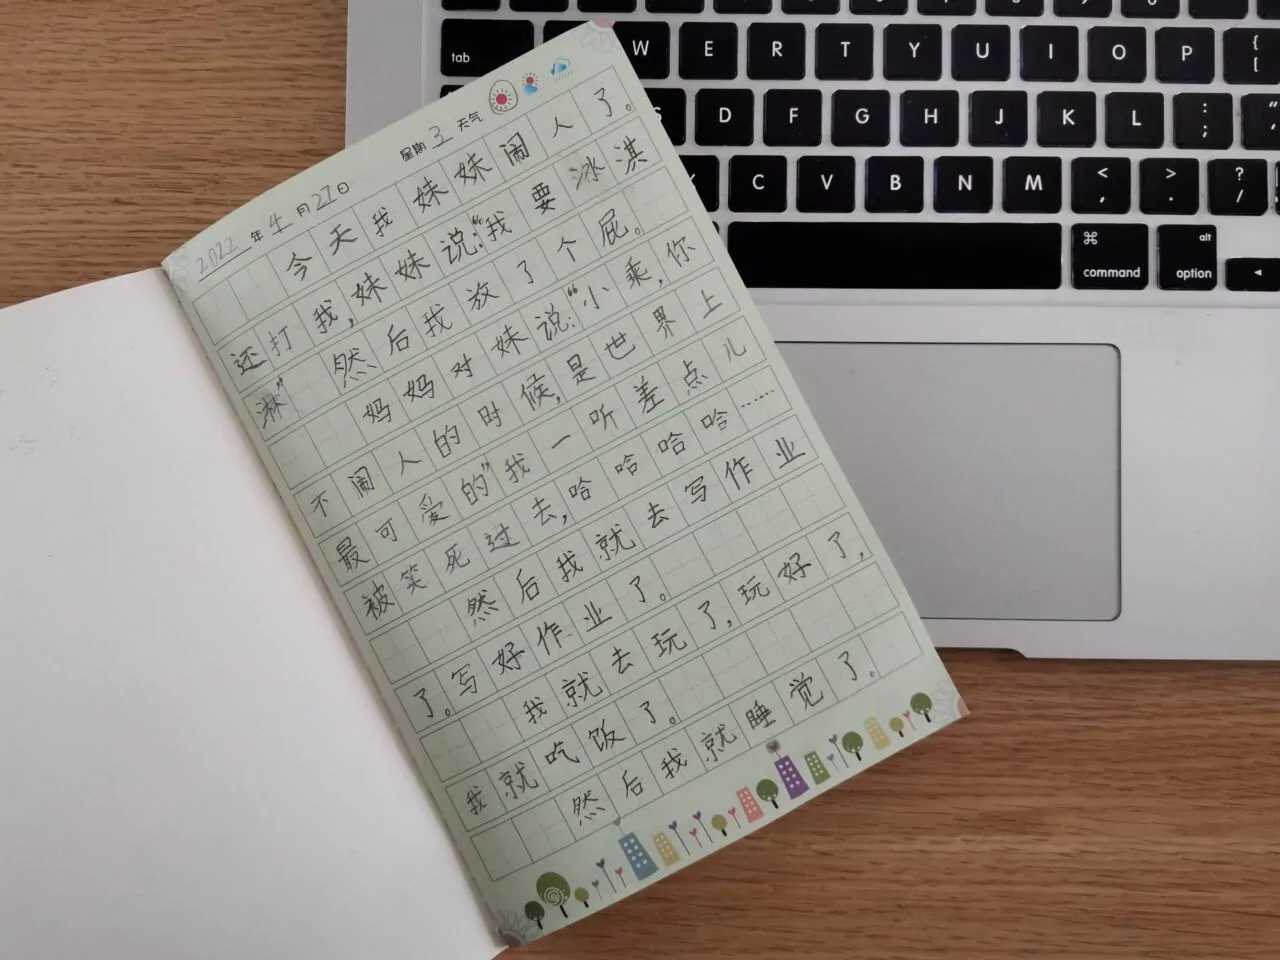 2022年4月27日 星期3 天气
今天我妹妹闹人了。
还打我,妹妹说:“我要冰淇
淋”然后我放了个屁。
妈妈对妹说:“小乘,你
不闹人的时候,是世界上
最可爱的”我一听差点儿
被笑死过去,哈哈哈哈……
然后我就去写作业
了。写好作业了。
我就去玩了,玩好了,
我就吃饭了。
然后我就睡觉了。
tab
W E R T Y U I O P { [
S D F G H J K L : ; "
C V B N M < , > . ? /
⌘ command
alt option